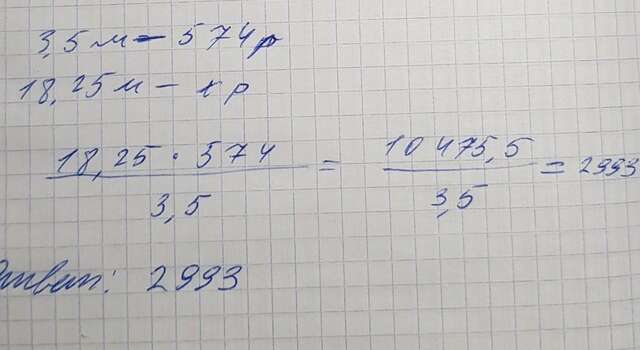 3,5 м – 574 р
18,25 м – х р
18,25 · 574 / 3,5 = 10 475,5 / 3,5 = 2993
Ответ: 2993